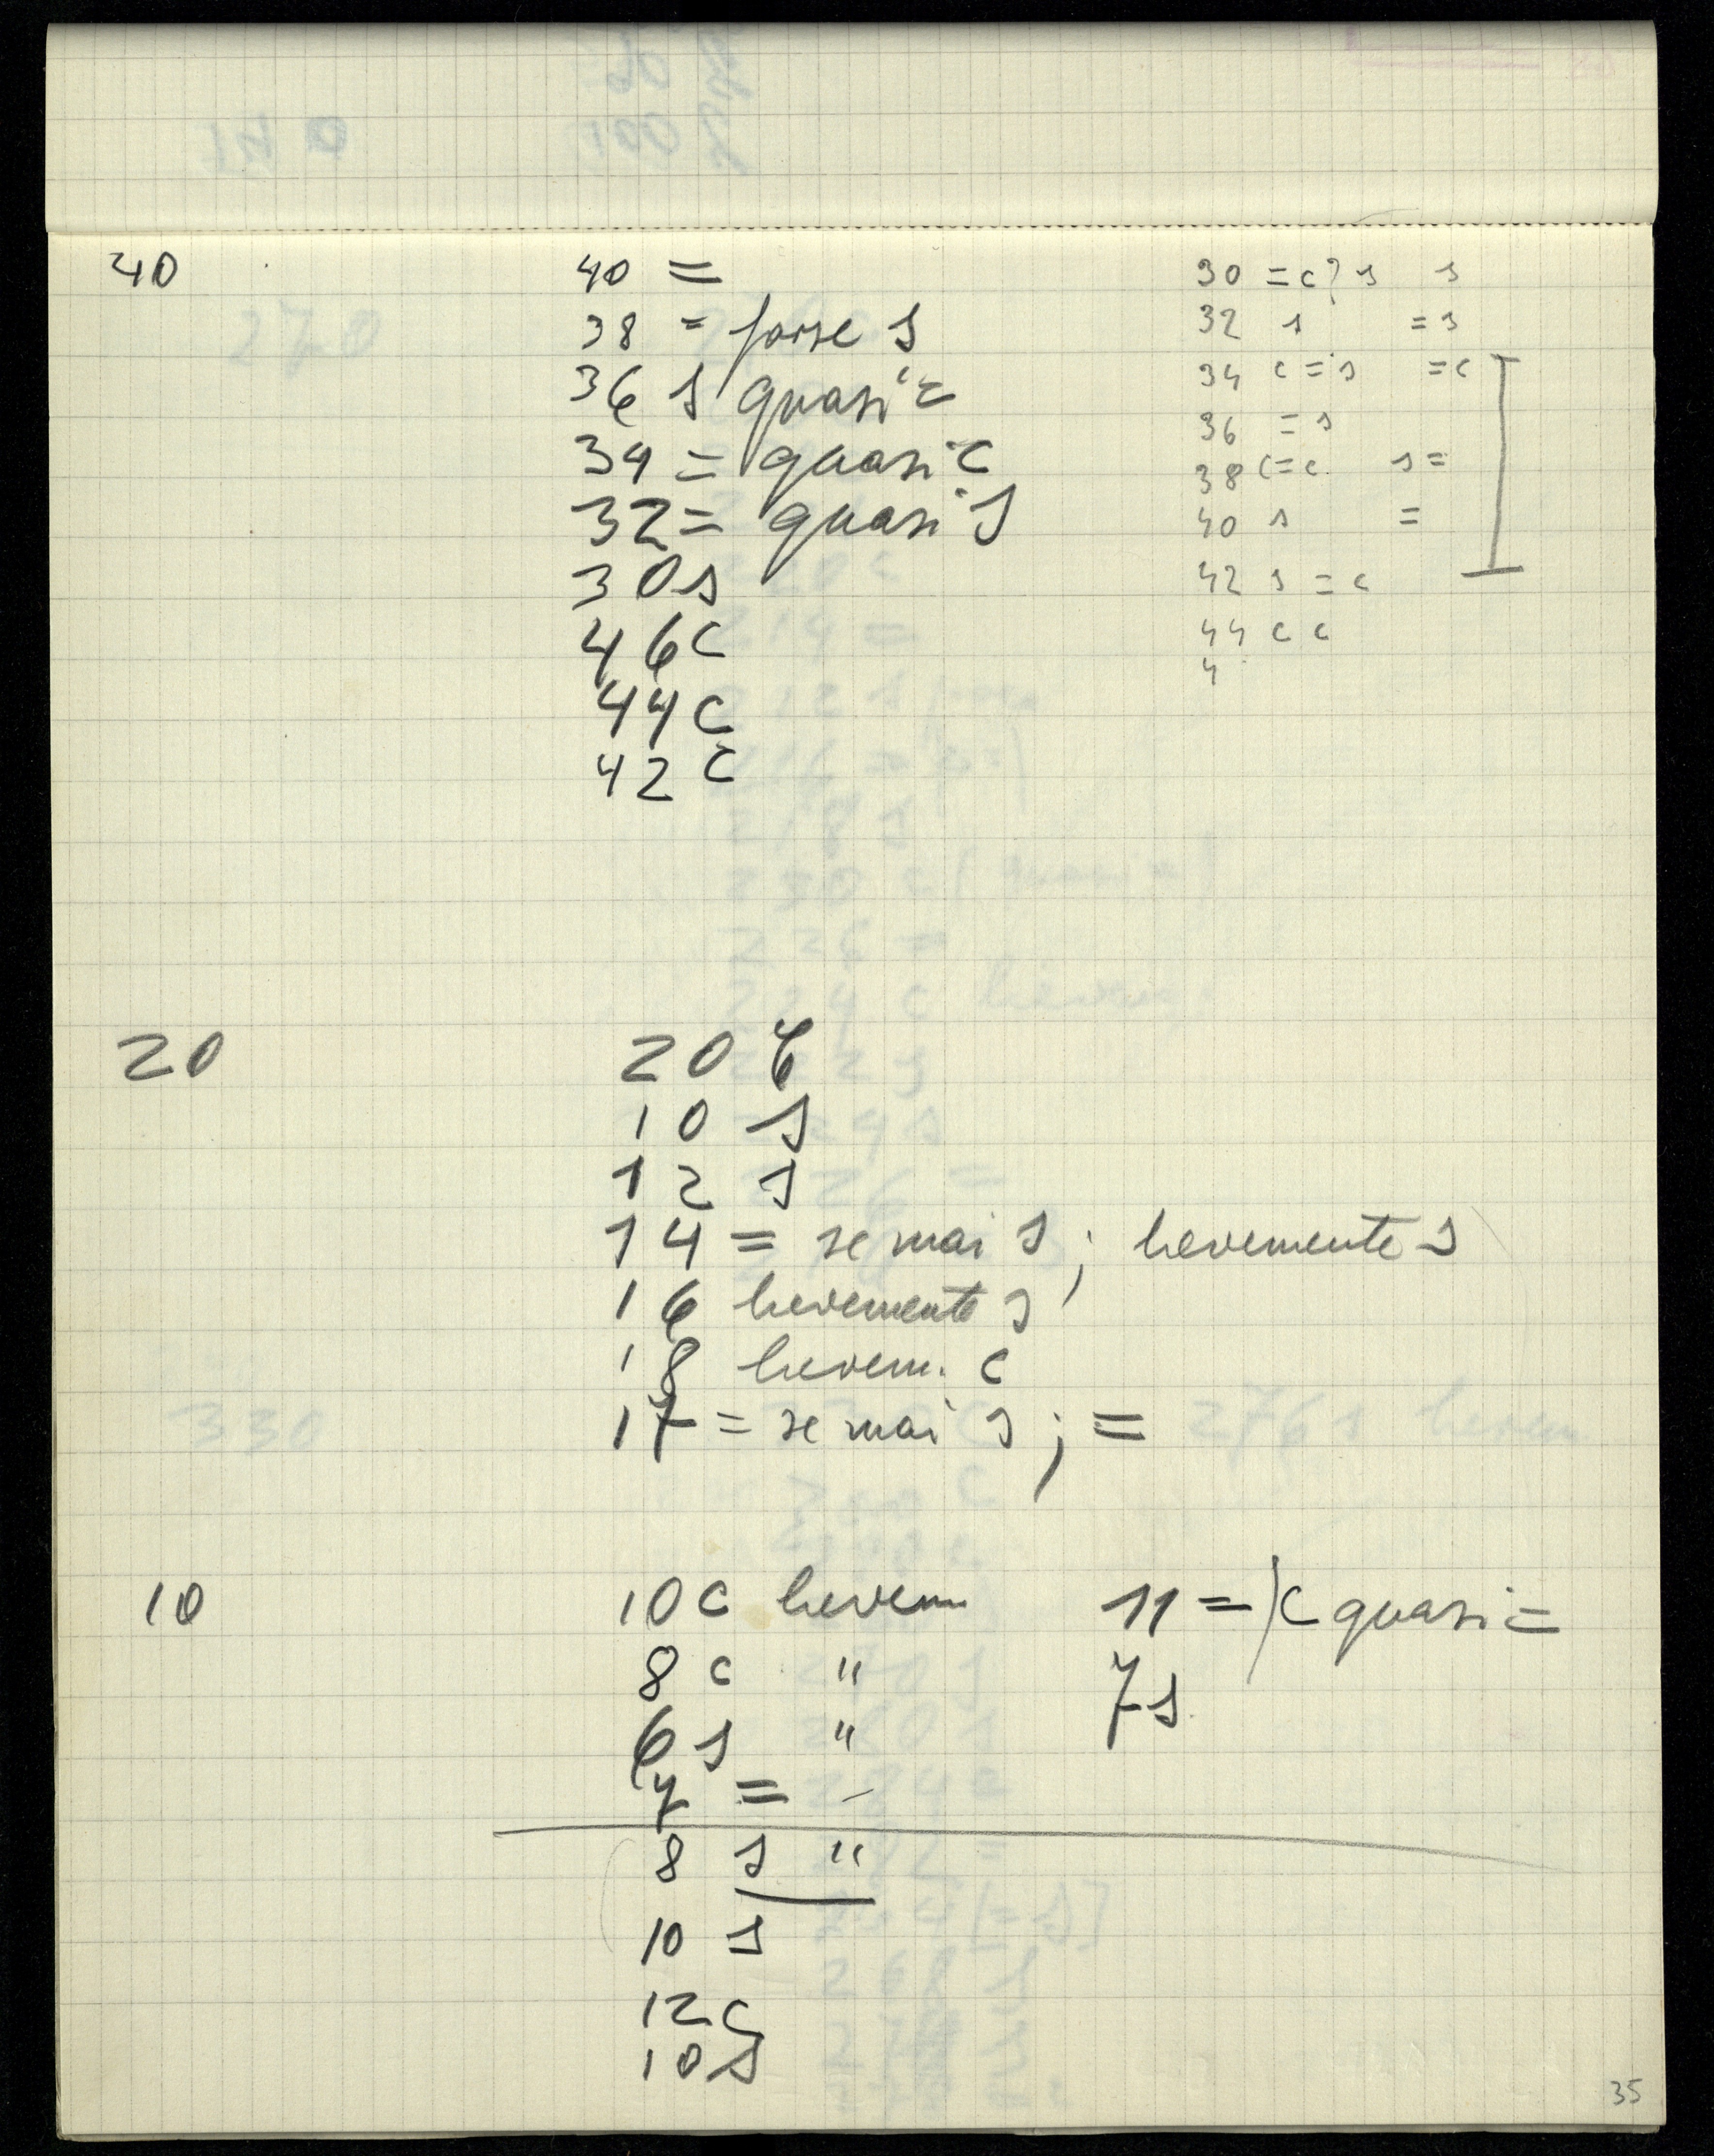 40
40 =
38 = forse s
36 s quasi =
34 = quasi c
32 = quasi s
30 s
46 c
44 c
42 c
30 = c? s s
32 s = s
34 c = s = c
36 = s
38 c = c s =
40 s =
42 s = c
44 c c
4
20
20
10 s
12 s
14 = se mai s ; lievemente s
16 lievemente s
18 lievem. c
17 = se mai s ; =
10
10 c lievem
8 c "
6 s "
7 = -
8 s "
10 s
12 c
10 s
11 = / c quasi =
7 s
35